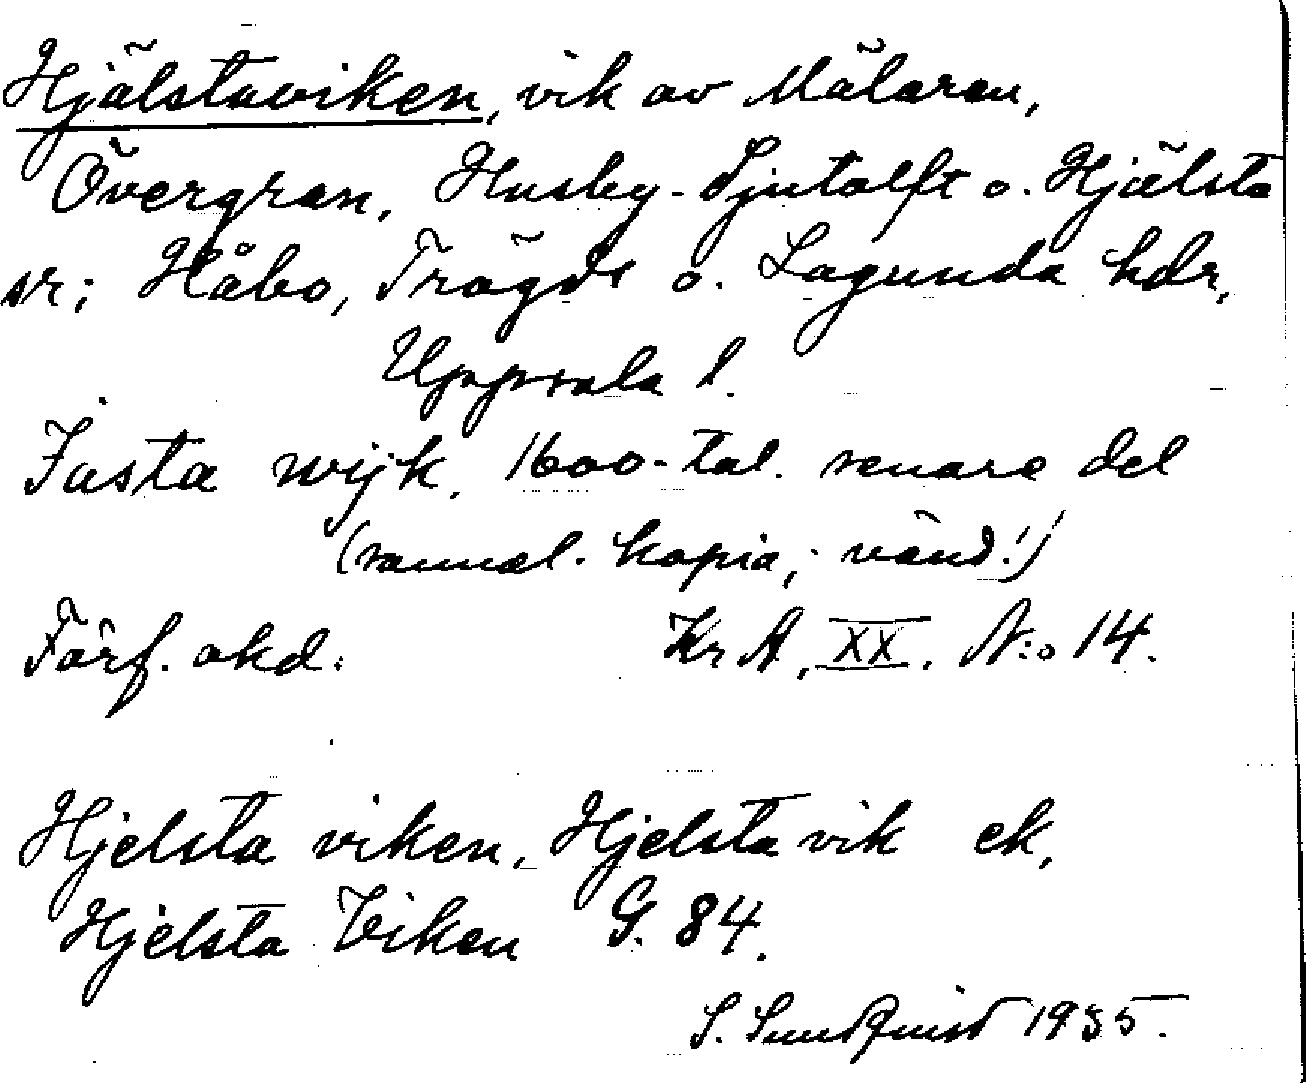 Hjälstaviken, vik av Mälaren,
Övergran, Husby-Sjutolft o. Hjälsta
sr; Håbo, Trögds o. Lagunda hdr,
Uppsala l.
Jästa wijk. 1600-tal. senare del
(sannol. kopia; vänd!)
Förf. okd. KrA, XX. N:o 14.
Hjelsta viken, Hjelsta vik ek,
Hjelsta Viken G. 84.
S. Sundquist 1935.